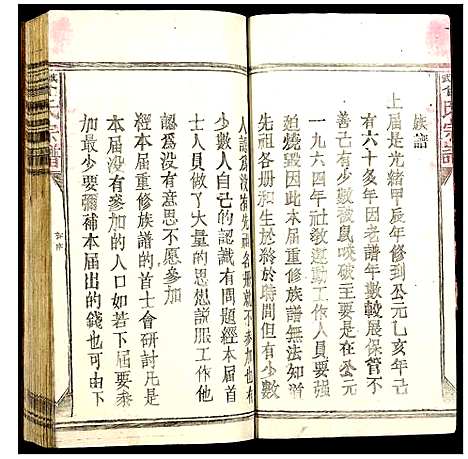 族譜
上屆是光緒甲辰年修到公元乙亥年己
有六十多年因老譜年數較長保管不
善己有少數被鼠咬破主要是在公元
一九六四年社教運動工作人員要強
迫燒毀因本屆重修族譜無法知道
先祖各冊和生於終於時間但有少數
人認為沒有先祖各冊就不參加也有
少數人自己的認識有問題經本屆首
士人員做了大量的思想說服工作他
認為沒有意思不愿參加
本屆重修族譜的首士會研討凡是
本屆沒有參加的人口如若下屆要參
加最少要彌補本屆出的錢也可由下
氏宗譜
氏宗譜